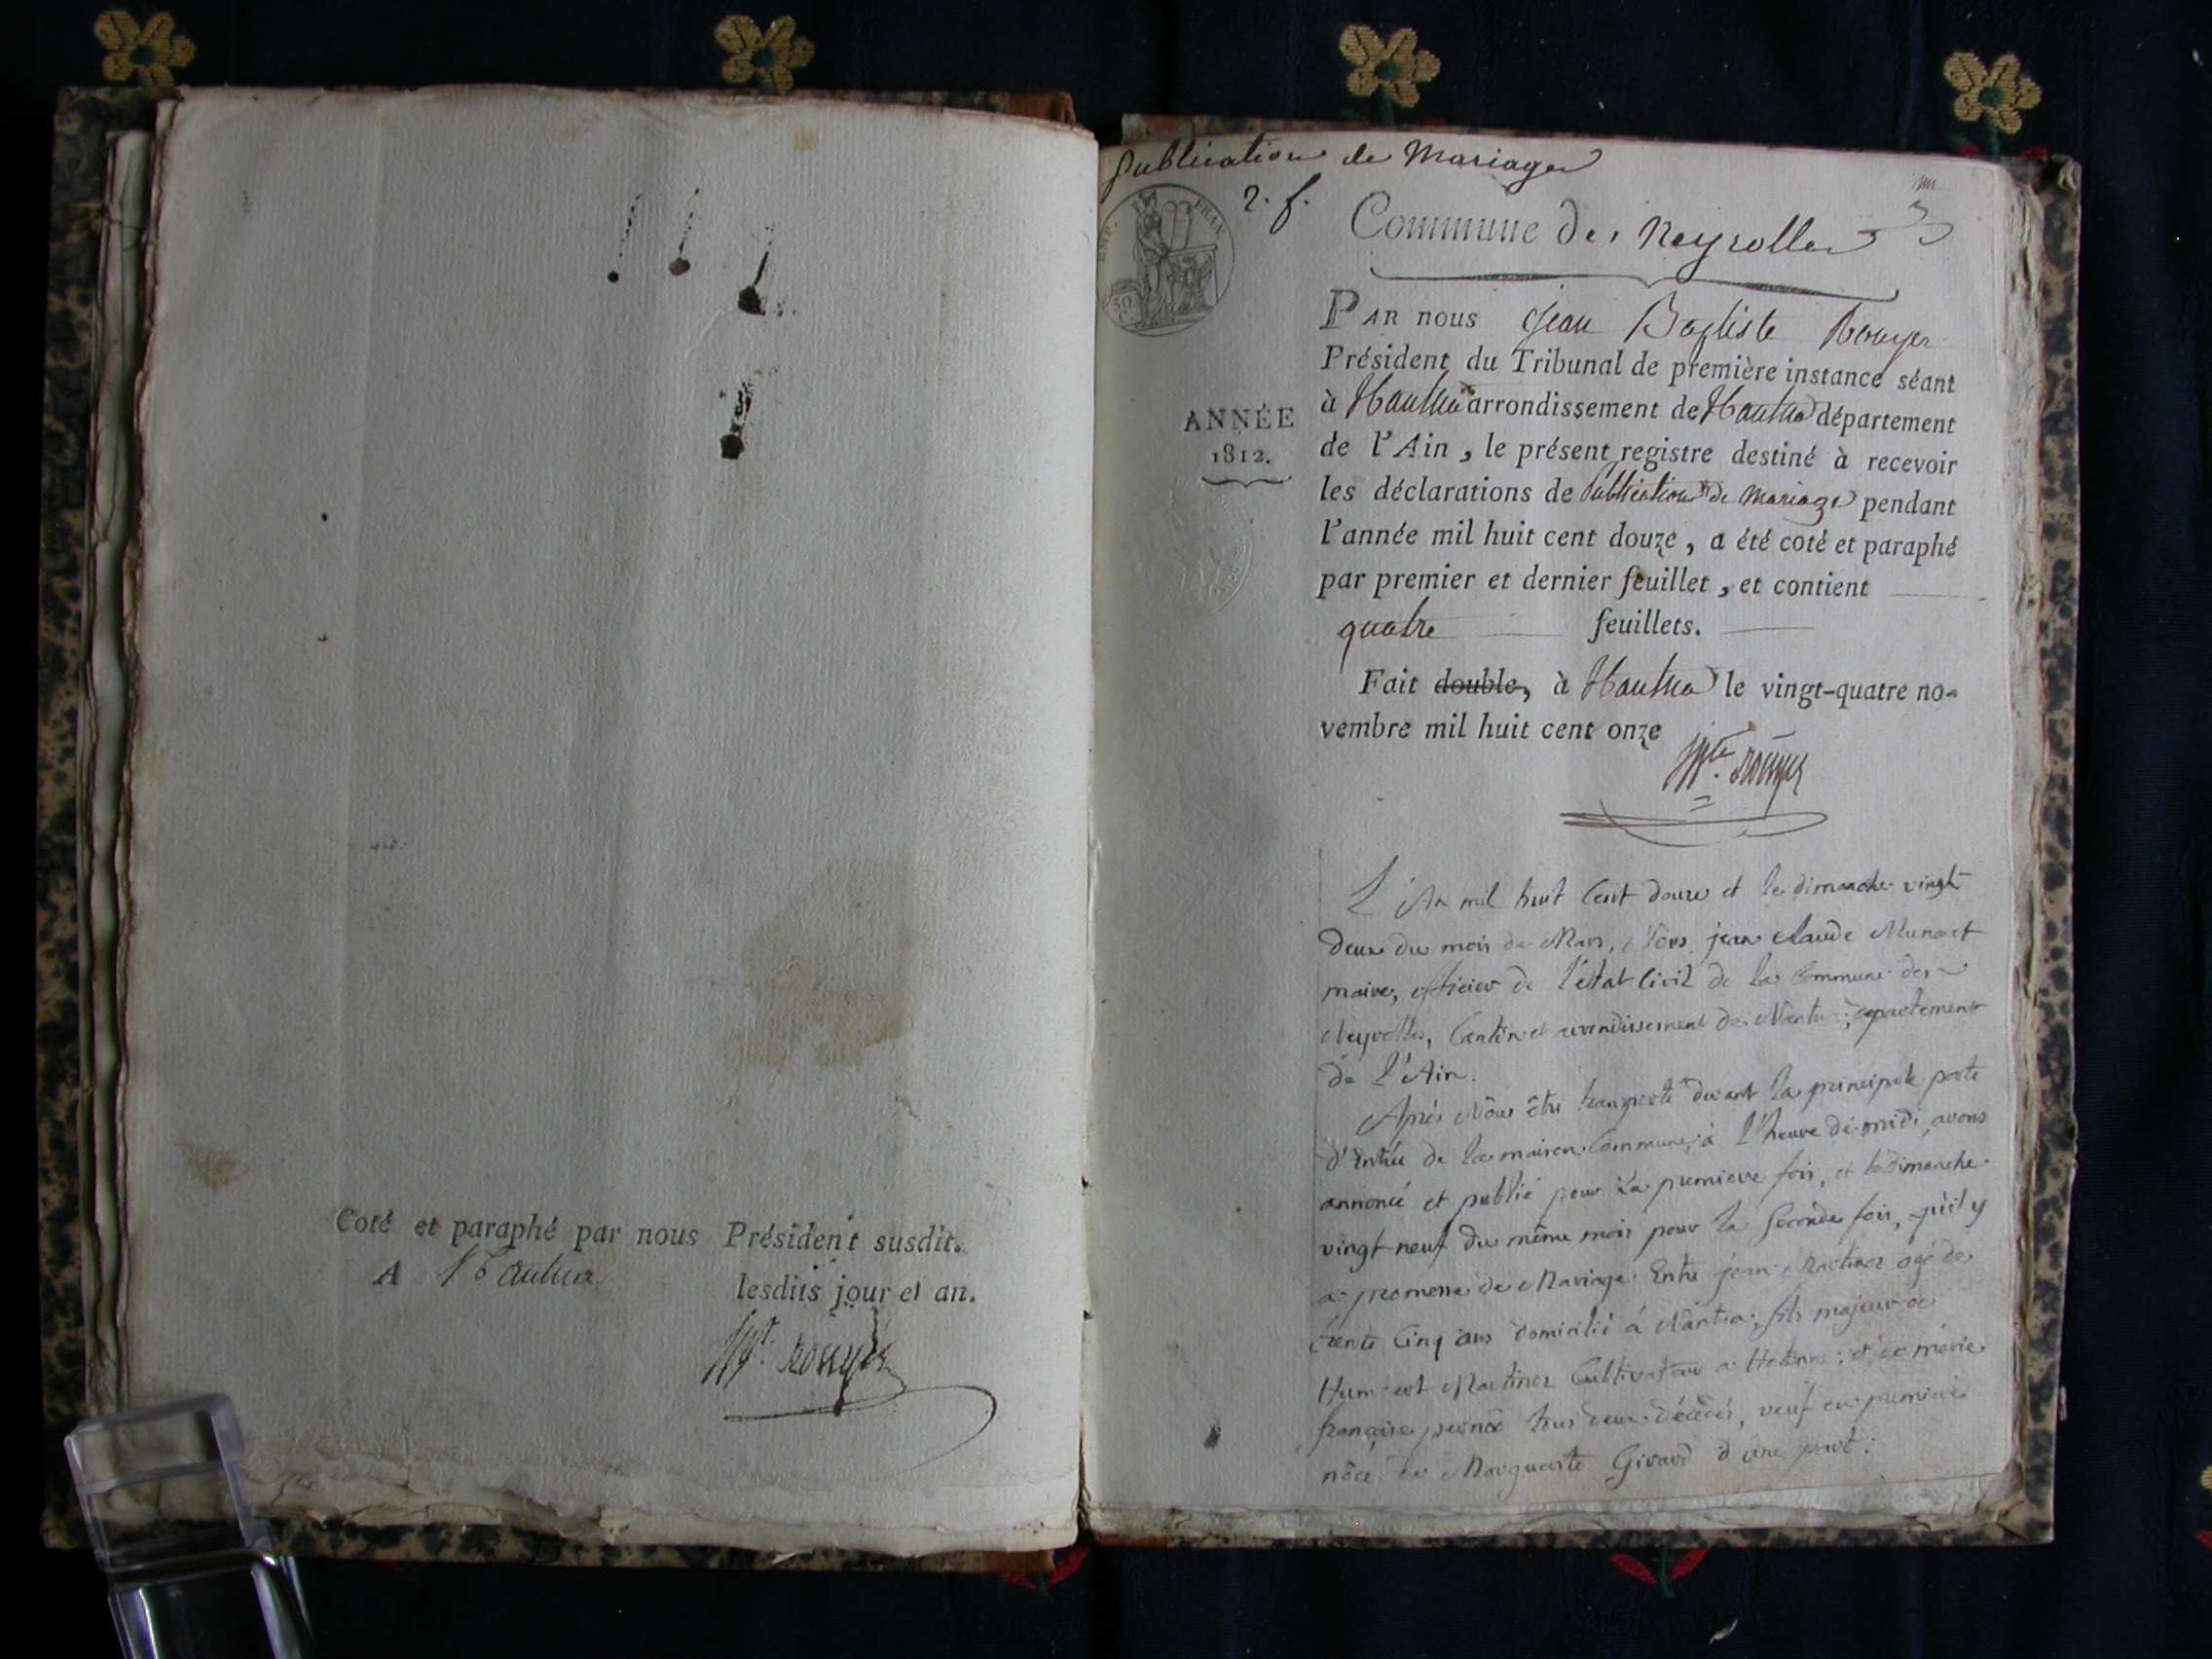 Coté et paraphé par nous Président susdit.
A Nantua lesdits jour et an.
Jn Bte. Rouyer
Publication de Mariage
2. f.
EMP. FRAN.
50
C.
Commune des Neyrolles
3
PAR nous Jean Baptiste Rouyer
Président du Tribunal de première instance séant
à Nantua arrondissement de Nantua département
ANNÉE
1812.
de l'Ain, le présent registre destiné à recevoir
les déclarations de Publication de Mariage pendant
l'année mil huit cent douze, a été coté et paraphé
par premier et dernier feuillet, et contient
quatre feuillets.
Fait double, à Nantua le vingt-quatre no-
vembre mil huit cent onze
Rouyer
L'An mil huit Cent douze et le dimanche vingt
deux du mois de Mars, Nous jean claude Munet
maire, officier de l'état Civil de la Commune des
Neyrolles, Canton et arrondissement de Nantua, département
de l'Ain.
Après Nous être transporté devant la principale porte
d'Entrée de la maison Commune, à l'heure de midi, avons
annoncé et publié pour la premiere fois, et le dimanche
vingt neuf du même mois pour la Seconde fois, qu'il y
a promesse de Mariage Entre jean Martinez agé de
trente Cinq ans domicilié à Nantua, fils majeur de
Humbert Martinez Cultivateur a et de marie
françoise tous deux décédés, veuf en premiere
nôce de Marguerite Girard d'une part: